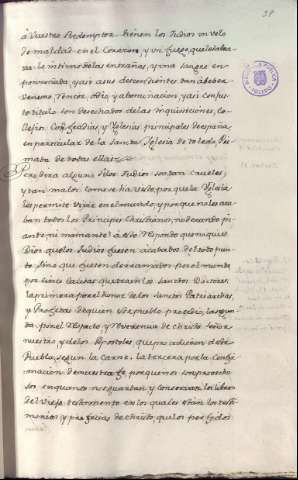 38
á Nuestro Redemptor tienen los Judios un velo
de maldad en el Corazon, y un fuego, que les abra-
sa lo intimo de las entrañas, y una sangre en-
ponzoñada, y asi a sus descendientes dan á beber
veneno, rencor, odio, y abominacion, y asi con jus-
to titulo son desechados de las inquisiciones, Co-
legios, Cofradias, y Yglesias principales de españa
en particular de la Santa Yglesia de toledo, Pri-
mada de todas ellas
Preguntará alguno si los Judios son tan crueles,
y tan malos como se ha visto, por que la Yglesia
les permite vivir en el mundo, y porque no los aca-
ban todos los Principes Christianos, no dexando
á esto respondo que no quiere
Dios que los Judios fuesen acabados del todo pun-
to, sino que fuesen derramados por el mundo
por cinco causas que traen los Santos Doctores
la primera por el honor de los Santos Patriarchas,
y Profetas de quien este pueblo procedio, la segun-
da por el respeto, y reverencia de christo señor
nuestro, y de los Apostoles que procedieron de este
Pueblo, segun la Carne. La tercera por la Confir-
macion de nuestra fe, porque nos son provecho-
sos en quanto nos guardan, y conservan los libros
del Viejo testamento en los quales estan los testi-
monios, y profecias de christo, que los